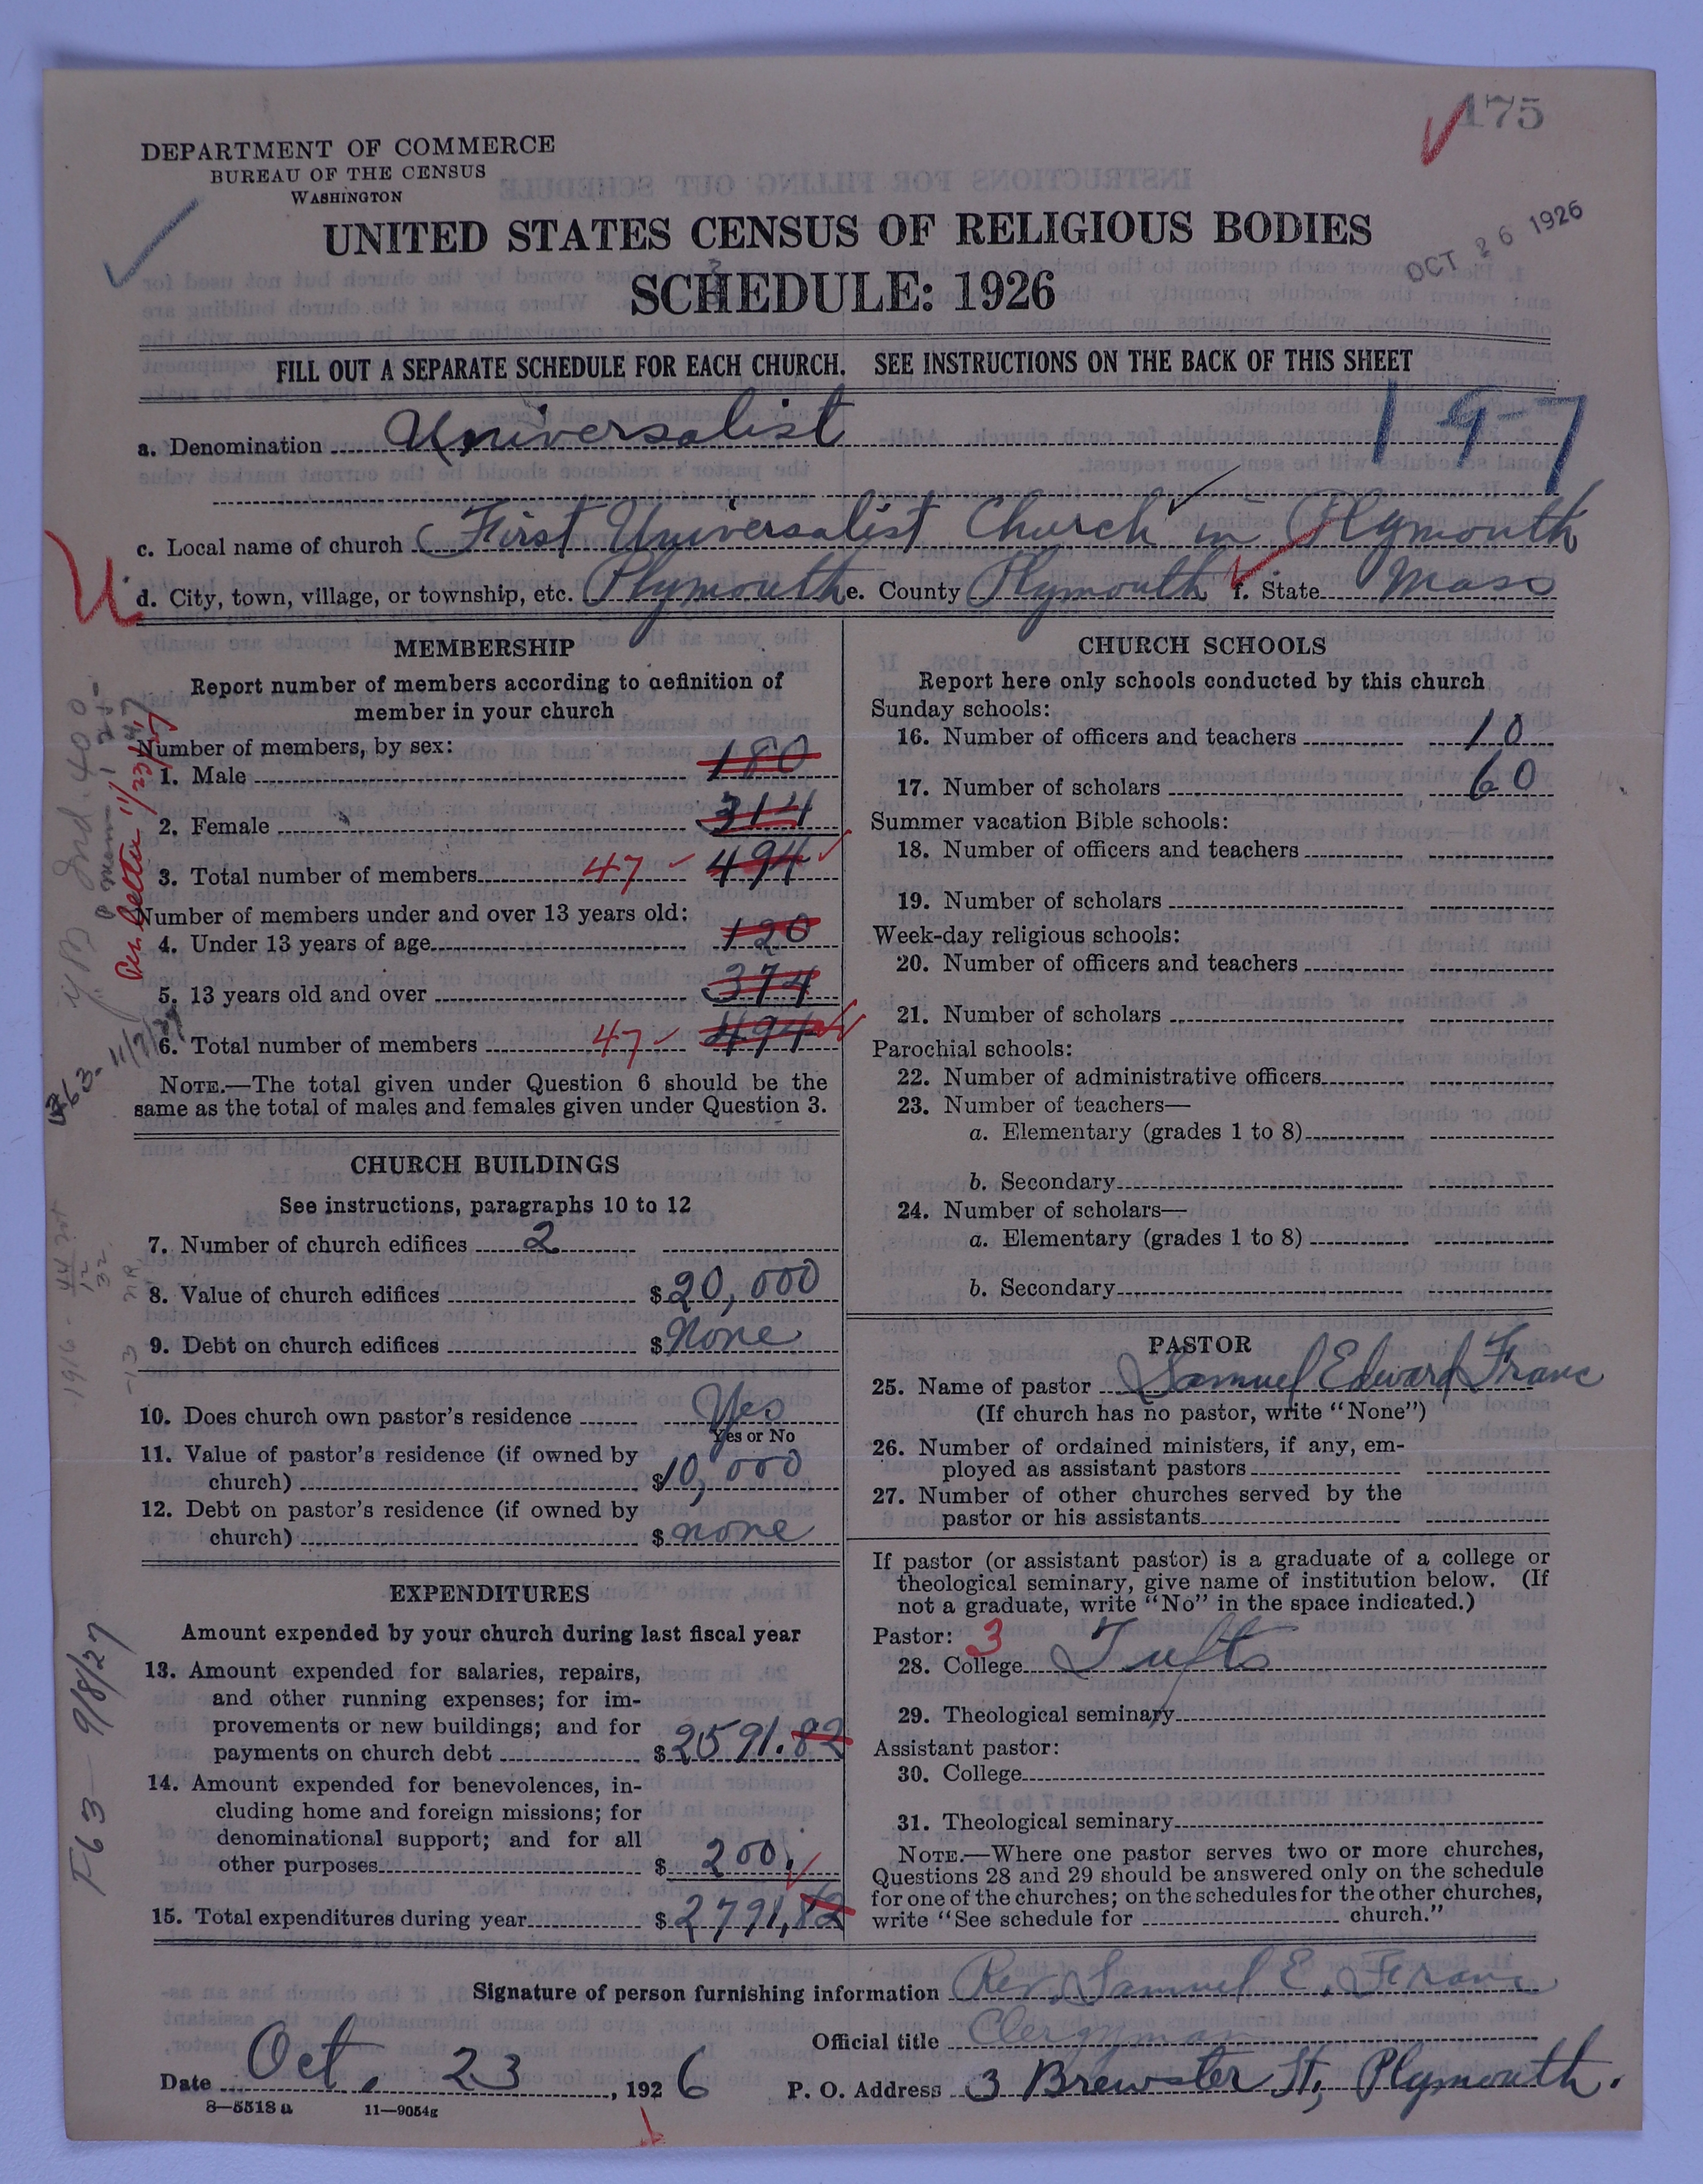 175
DEPARTMENT OF COMMERCE
BUREAU OF THE CENSUS
WASHINGTON
UNITED STATES CENSUS OF RELIGIOUS BODIES
OCT 26 1926
SCHEDULE: 1926
FILL OUT A SEPARATE SCHEDULE FOR EACH CHURCH. SEE INSTRUCTIONS ON THE BACK OF THIS SHEET
a. Denomination Universalist 197
c. Local name of church First Universalist Church in Plymouth
d. City, town, village, or township, etc. Plymouth e. County Plymouth f. State Mass
MEMBERSHIP
Report number of members according to definition of
member in your church
Number of members, by sex:
1. Male 180
2. Female 314
3. Total number of members 47 494
Number of members under and over 13 years old:
4. Under 13 years of age 120
5. 13 years old and over 374
6. Total number of members 47 494
NOTE.—The total given under Question 6 should be the
same as the total of males and females given under Question 3.
CHURCH BUILDINGS
See instructions, paragraphs 10 to 12
7. Number of church edifices 2
8. Value of church edifices $20,000
9. Debt on church edifices $None
10. Does church own pastor's residence Yes
Yes or No
11. Value of pastor's residence (if owned by
church) $10,000
12. Debt on pastor's residence (if owned by
church) $none
EXPENDITURES
Amount expended by your church during last fiscal year
13. Amount expended for salaries, repairs,
and other running expenses; for im-
provements or new buildings; and for
payments on church debt $2591.82
14. Amount expended for benevolences, in-
cluding home and foreign missions; for
denominational support; and for all
other purposes $200.
15. Total expenditures during year $2791,82
CHURCH SCHOOLS
Report here only schools conducted by this church
Sunday schools:
16. Number of officers and teachers 10
17. Number of scholars 60
Summer vacation Bible schools:
18. Number of officers and teachers
19. Number of scholars
Week-day religious schools:
20. Number of officers and teachers
21. Number of scholars
Parochial schools:
22. Number of administrative officers
23. Number of teachers—
a. Elementary (grades 1 to 8)
b. Secondary
24. Number of scholars—
a. Elementary (grades 1 to 8)
b. Secondary
PASTOR
25. Name of pastor Samuel Edward Frane
(If church has no pastor, write "None")
26. Number of ordained ministers, if any, em-
ployed as assistant pastors
27. Number of other churches served by the
pastor or his assistants
If pastor (or assistant pastor) is a graduate of a college or
theological seminary, give name of institution below. (If
not a graduate, write "No" in the space indicated.)
Pastor: 3
28. College Tufts
29. Theological seminary
Assistant pastor:
30. College
31. Theological seminary
NOTE.—Where one pastor serves two or more churches,
Questions 28 and 29 should be answered only on the schedule
for one of the churches; on the schedules for the other churches,
write "See schedule for church."
Signature of person furnishing information Rev. Samuel E. Frane
Official title Clergyman
Date Oct. 23, 1926 P. O. Address 3 Brewster St, Plymouth.
8—5518 a 11—9054g
Per letter 11/23/27
F63— 9/8/27